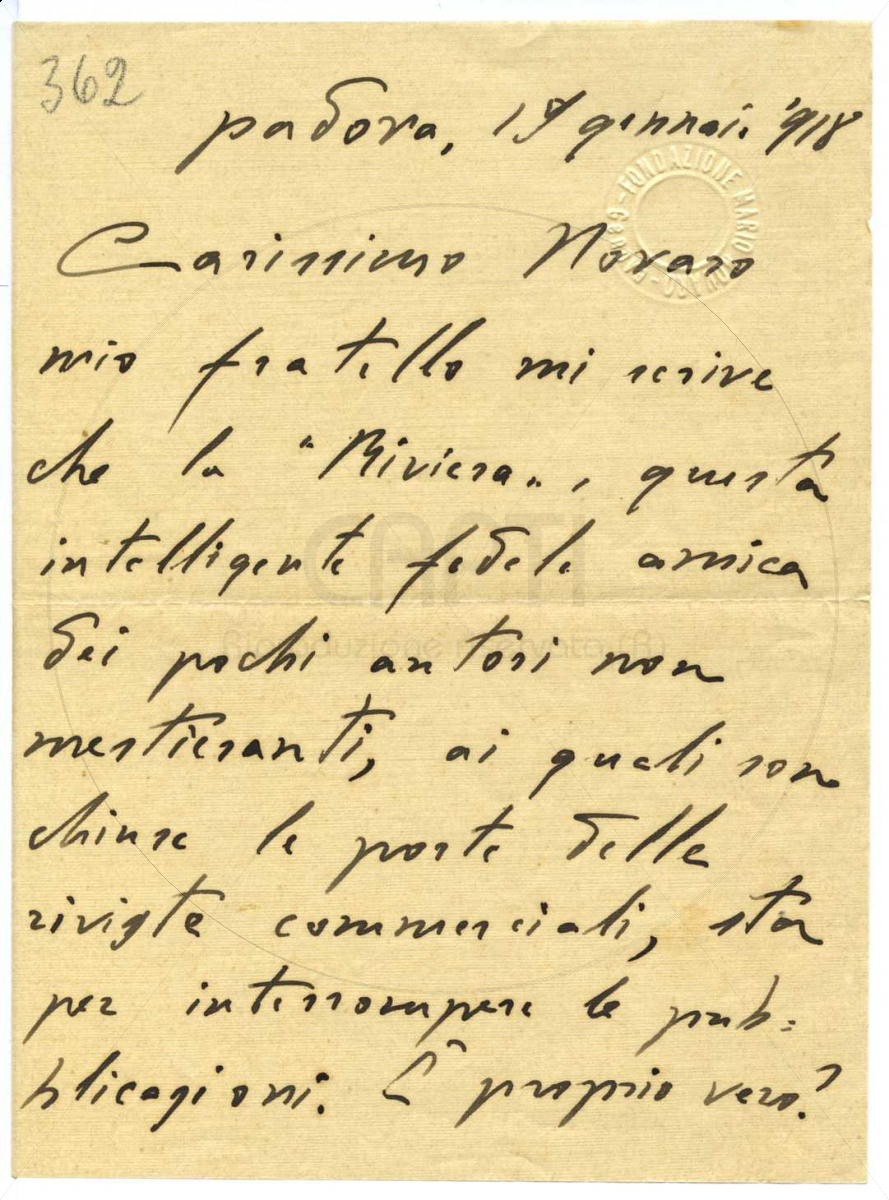 362
padova, 19 gennaio '918
FONDAZIONE MARIO NOVARO - GENOVA
Carissimo Novaro
mio fratello mi scrive
che la "Riviera", questa
intelligente fedele amica
dei pochi autori non
mestieranti, ai quali son
chiuse le porte delle
riviste commerciali, sta
per interrompere le pub=
blicazioni. È proprio vero?
CARTI
Riproduzione riservata